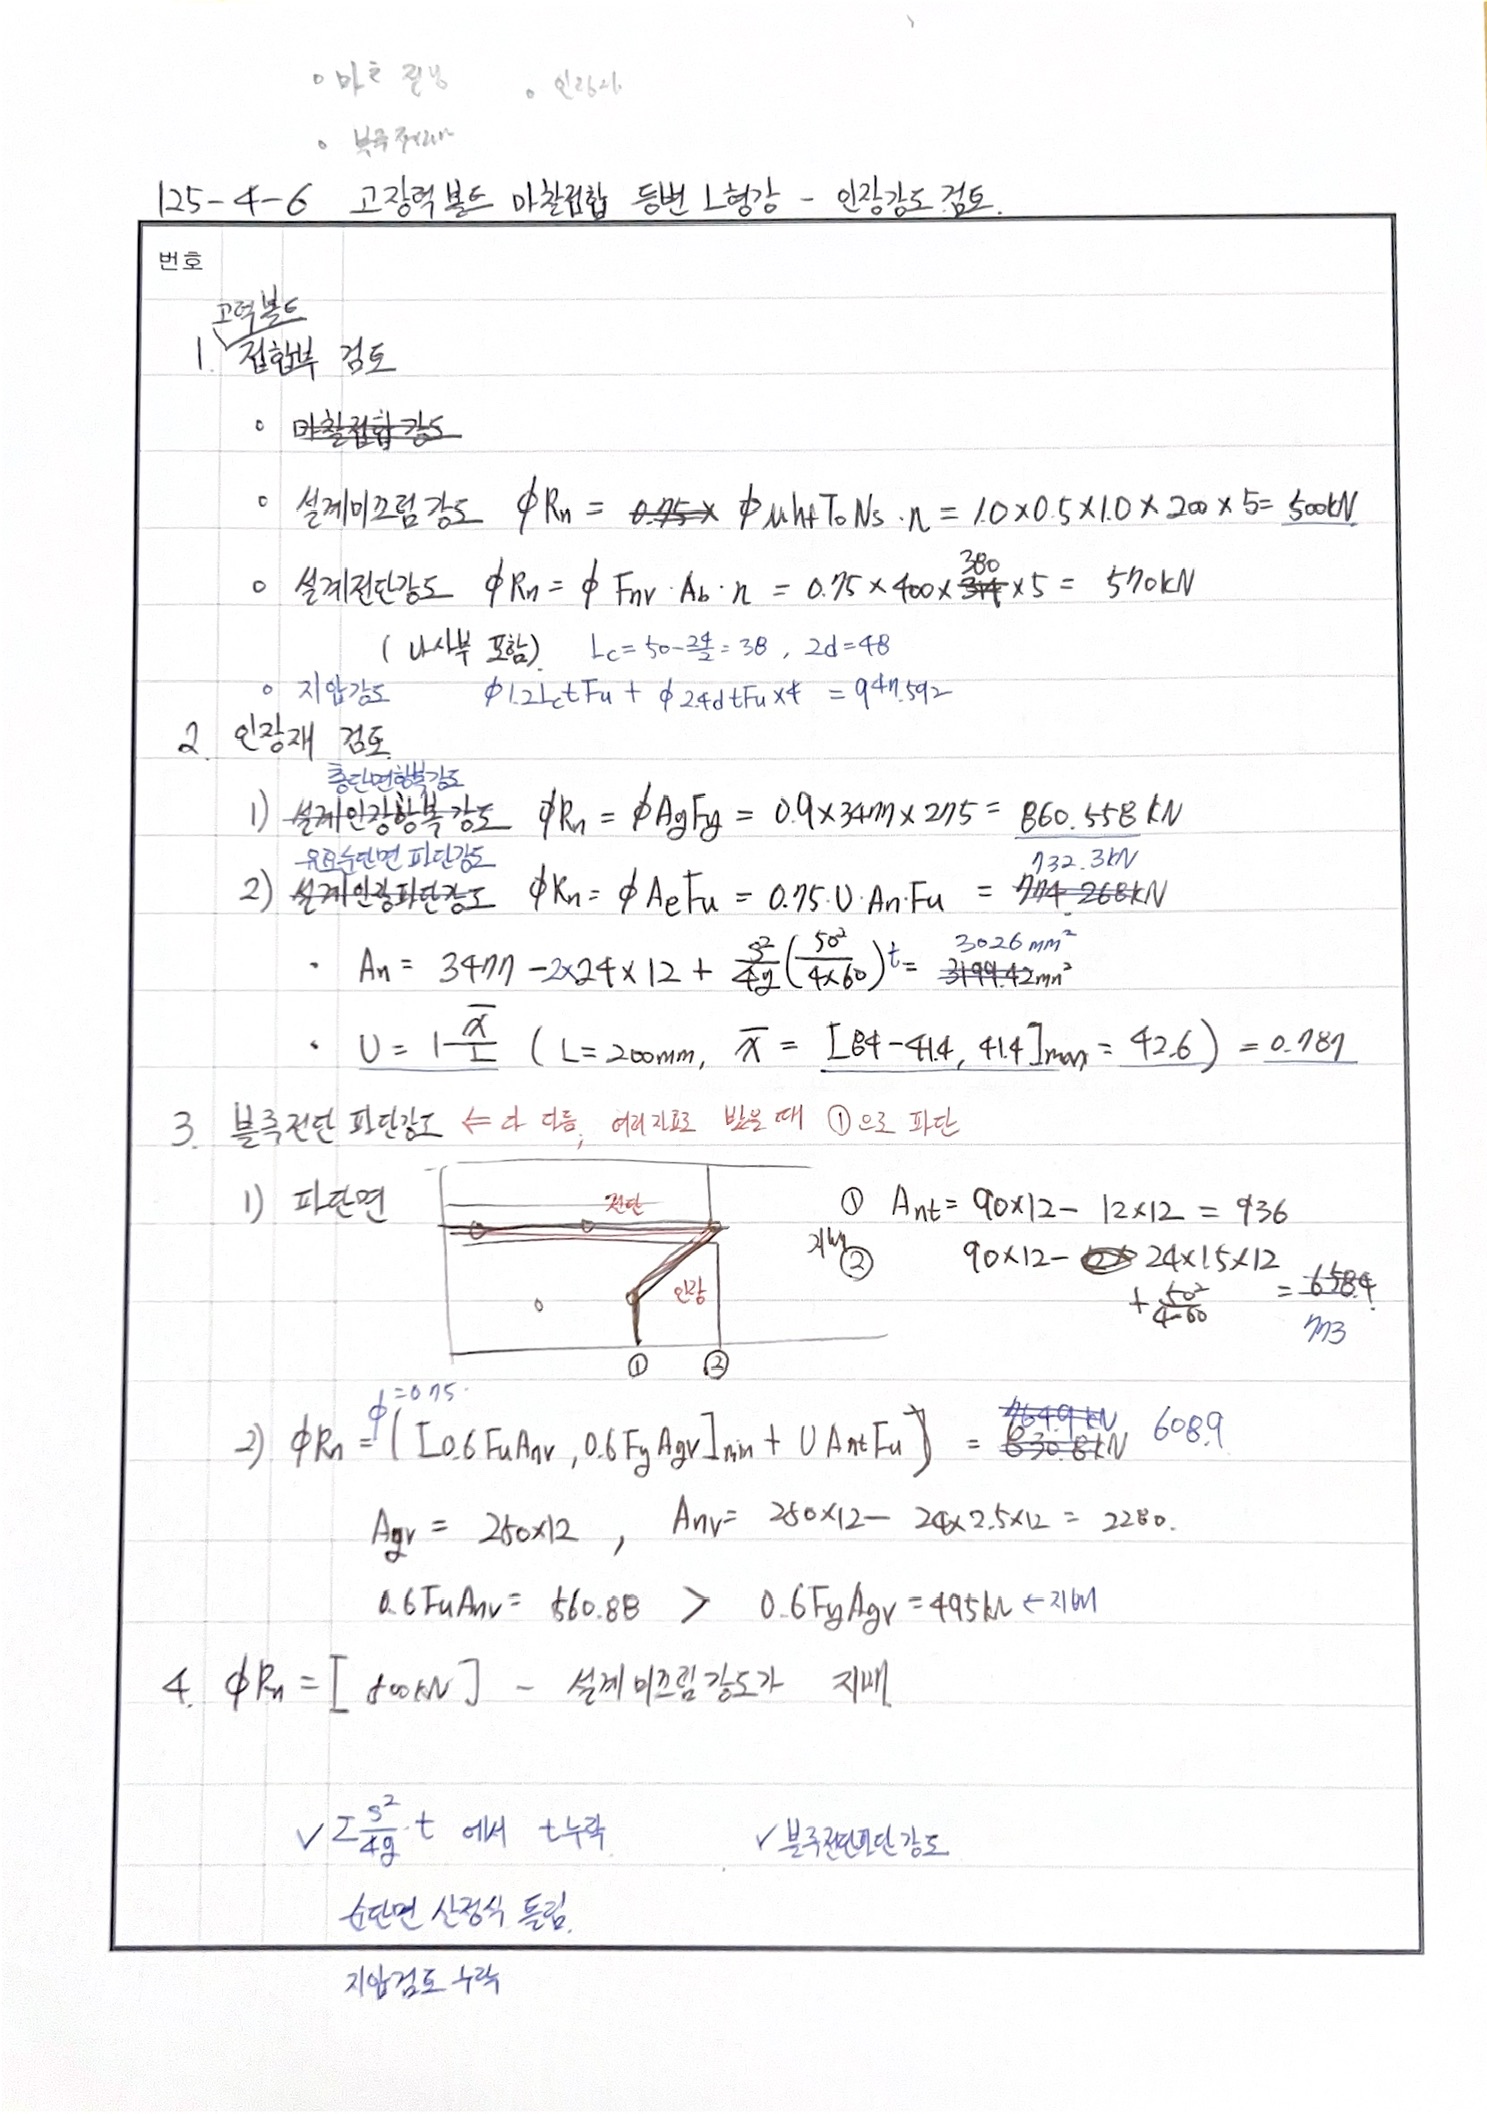 마찰
인장재
125-4-6 고장력볼트 마찰접합 등변 L형강 - 인장강도 검토.
번호
고력볼트
1. 접합부 검토
◦ 마찰접합강도
◦ 설계미끄럼강도 ϕRn = 0.75× ϕμhfToNs·n = 1.0×0.5×1.0×200×5= 500kN
380
◦ 설계전단강도 ϕRn = ϕ Fnv·Ab·n = 0.75×400×314×5 = 570kN
(나사부 포함). Lc = 50-24/2 = 38, 2d=48
◦ 지압강도 ϕ1.2LctFu + ϕ2.4dtFu×4 = 947.592
2. 인장재 검토
총단면항복강도
1) 설계인장항복강도 ϕRn = ϕAgFy = 0.9×3477×275 = 860.558kN
유효순단면 파단강도 732.3kN
2) 설계인장파단강도 ϕRn = ϕAeFu = 0.75·U·An·Fu = 774.268kN
3026mm²
· An = 3477 -2×24×12 + s²/4g (50²/4×60)t = 3199.42mm²
· U = 1-x̄/L (L=200mm, x̄ = [84-41.4, 41.4]max = 42.6) = 0.787
3. 블록전단 파단강도 ⇐ 다 다름, 여러지표로 봤을때 ①으로 파단
1) 파단면 전단 ① Ant = 90×12- 12×12 = 936
지배 ② 90×12- 24×1.5×12
인장 + 50²/4·60 = 658.4
773
① ②
ϕ=0.75.
2) ϕRn = ϕ([0.6FuAnv, 0.6FyAgv]min + UAntFu) = 630.8kN 608.9
Agv = 250×12, Anv= 250×12- 24×2.5×12 = 2280.
0.6FuAnv = 560.88 > 0.6FyAgv = 495kN ← 지배
4. ϕRn = [500kN] - 설계미끄럼강도가 지배
✓ Σs²/4g·t 에서 t누락. ✓블록전단파단강도
순단면 산정식 틀림.
지압검토 누락